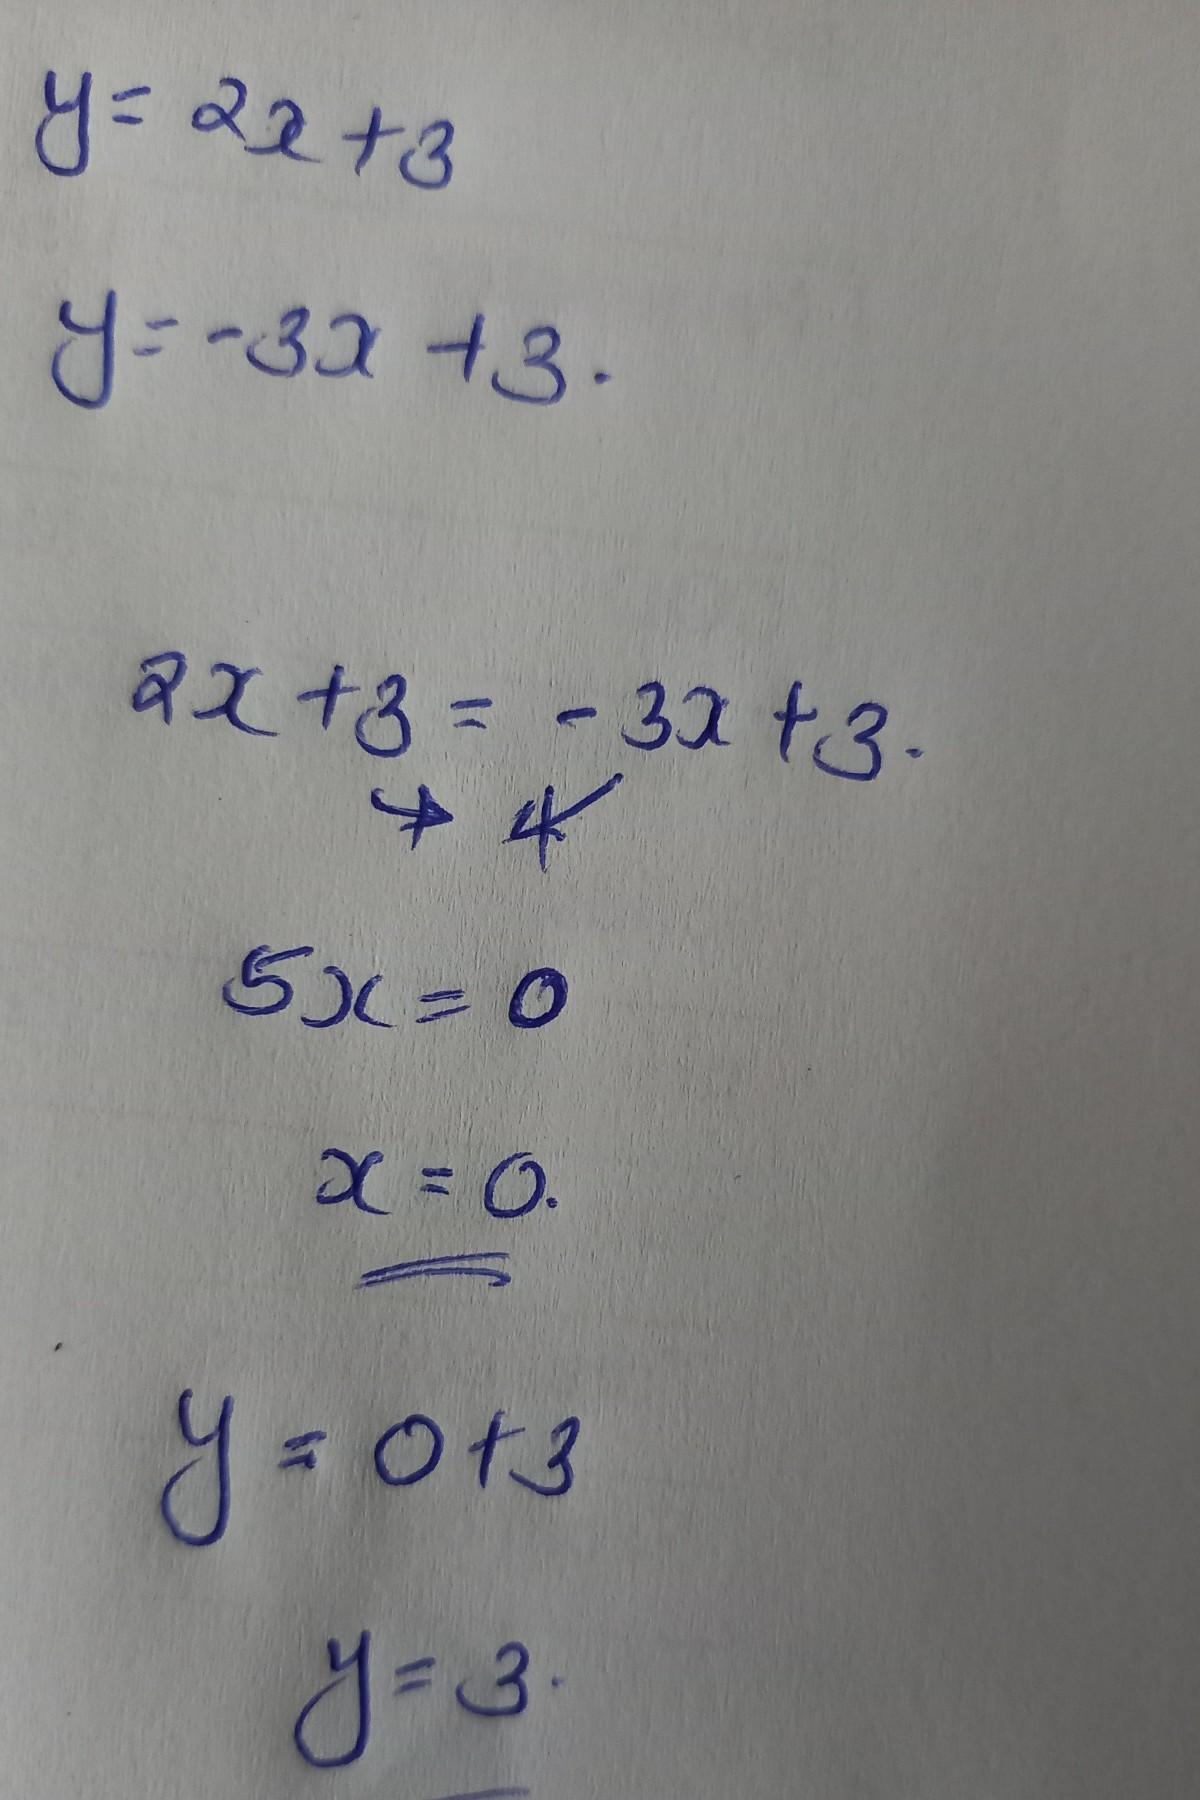 y = 2x + 3
y = -3x + 3.
2x + 3 = -3x + 3.
→ ↙
5x = 0
x = 0.
y = 0 + 3
y = 3.